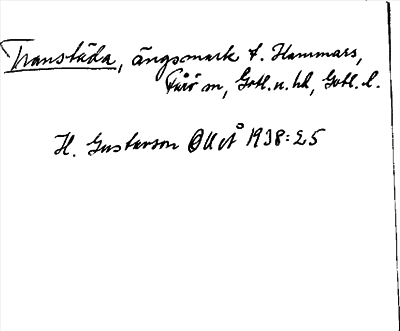 Transtäda, ängsmark t. Hammars,
Fårö sn, Gotl. n. hd, Gotl. l.
H. Gustavson OUÅ 1938: 25